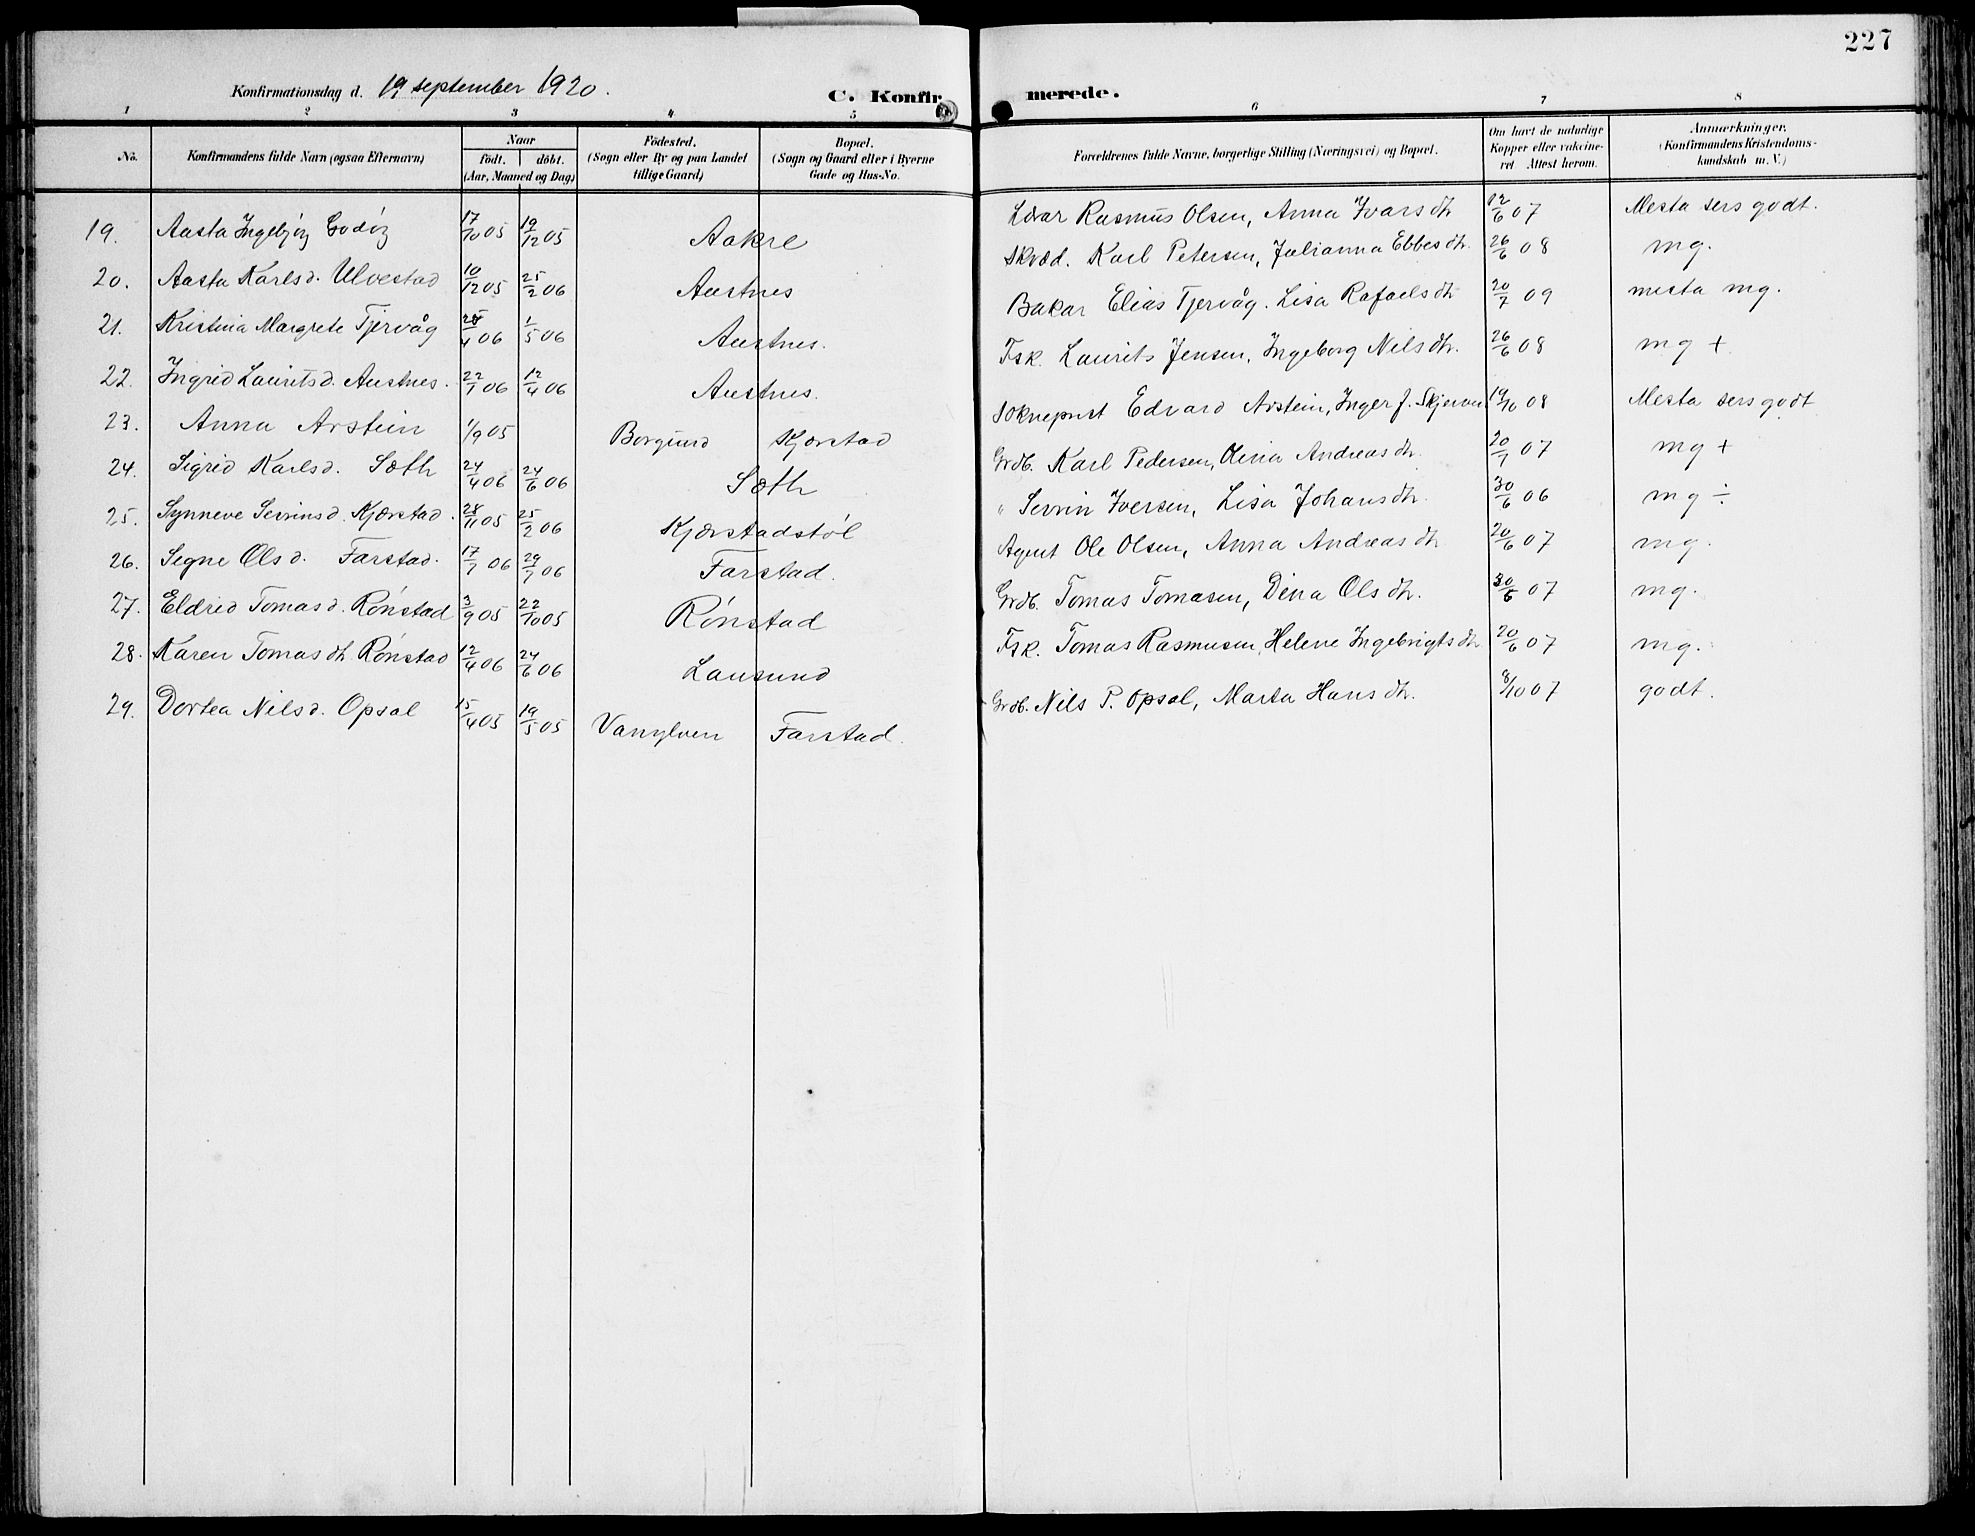 227
Konfirmationsdag d. 19 september 1920.
C. Konfir merede.
1 2 3 4 5 6 7 8
No. Konfirmandens fulde Navn (ogsaa Efternavn) Naar födt. döbt. (Aar, Maaned og Dag) Födested. (Sogn eller By og paa Landet tillige Gaard) Bopæl. (Sogn og Gaard eller i Byerne Gade og Hus-No. Forældrenes fulde Navne, borgerlige Stilling (Næringsvei) og Bopæl. Om havt de naturlige Kopper eller vakcineret Attest herom. Anmærkninger. (Konfirmandens Kristendomskundskab m. V.)
19. Aasta Ingebjörg Godöy 17/10 05 19/12 05 Aakre Lærar Rasmus Olsen, Anna Ivarsdtr 12/6 07 Mesta sers godt.
20. Aasta Karlsd. Ulvestad 10/12 05 25/2 06 Austnes Skræd. Karl Petersen, Julianna Ebbesdtr. 26/6 08 mg.
21. Kristina Margrete Tjervåg 25/4 06 1/5 06 Austnes. Bakar Elias Tjervåg. Lisa Rafaelsdtr 20/7 09 mesta mg.
22. Ingrid Lauritsd. Austnes. 22/1 06 12/4 06 Austnes. Fsk. Laurits Jensen, Ingeborg Nilsdtr. 26/6 08 mg +
23. Anna Arstein 1/9 05 Borgund Kjærstad Sokneprest Edvard Arstein, Inger J. 19/10 08 Mesta sers godt
24. Sigrid Karlsd. Sæth 24/4 06 24/6 06 Sæth Grdb. Karl Pedersen, Olina Andreasdtr. 20/7 07 mg +
25. Synneve Sevrinsd. Kjærstad. 28/11 05 25/2 06 Kjærstadstöl " Sevrin Iversen, Lisa Johansdtr. 30/6 06 mg ÷
26. Segne Olsd. Farstad. 17/7 06 29/7 06 Farstad. Agent Ole Olsen, Anna Andreasdtr 20/6 07 mg.
27. Eldrid Tomasd. Rönstad 3/9 05 22/10 05 Rönstad Grdb. Tomas Tomasen, Dina Olsdtr. 30/6 07 mg.
28. Karen Tomasdtr. Rönstad 12/4 06 24/6 06 Lausund Fsk. Tomas Rasmusen, Helene Ingebrigtsdtr 20/6 07 mg.
29. Dortea Nilsd. Opsal 15/4 05 19/5 05 Vanylven Farstad. Grdb. Nils P. Opsal, Marta Hansdtr. 8/10 07 godt.